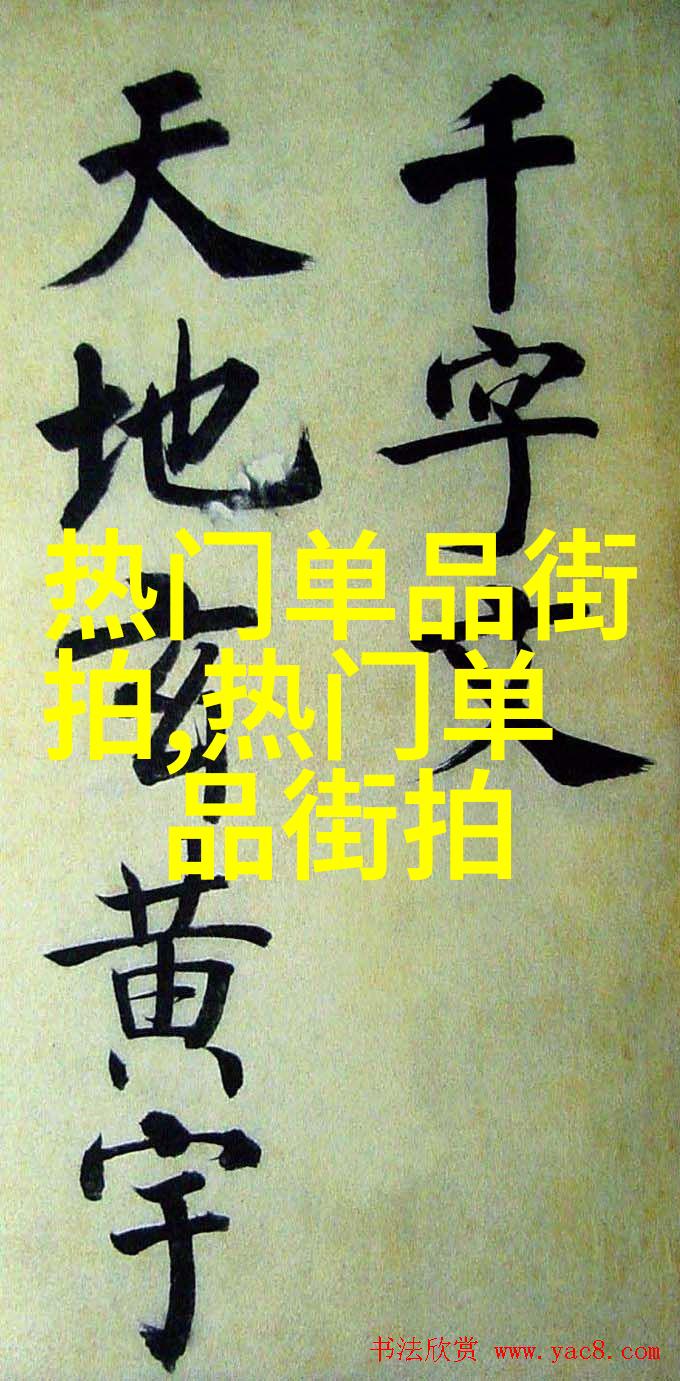 千字文
天地玄黄宇
热门单品街
拍,热门单
品街拍
书法欣赏 www.yac8.com